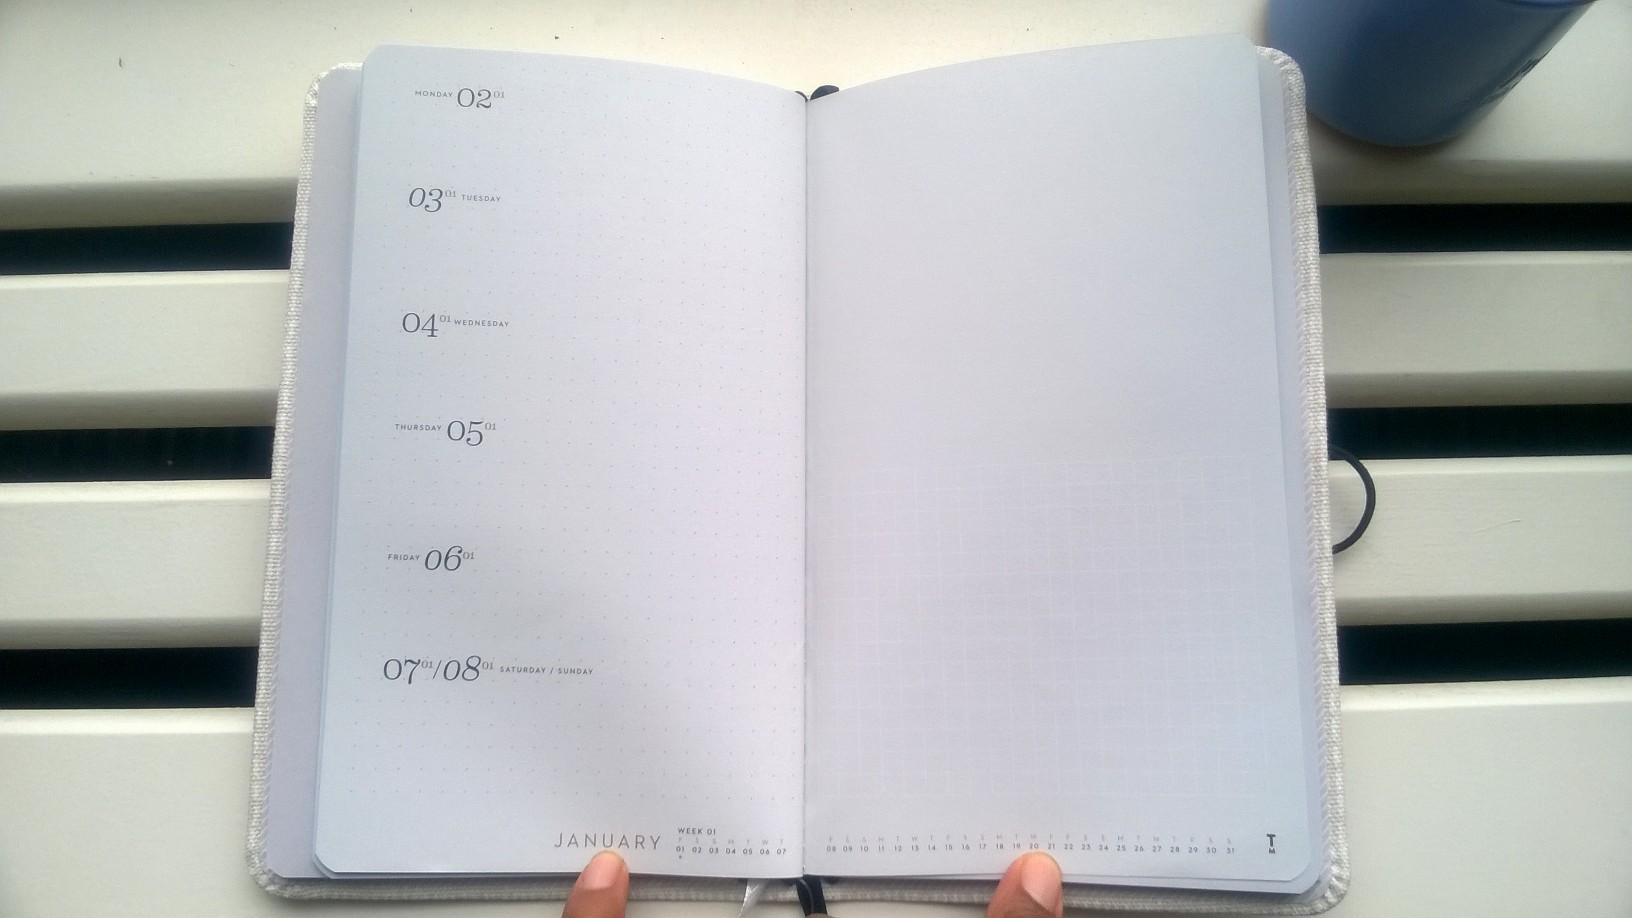 MONDAY 02 01
03 01 TUESDAY
04 01 WEDNESDAY
THURSDAY 05 01
FRIDAY 06 01
07 01/08 01 SATURDAY / SUNDAY
JANUARY
WEEK 01
F S S M T W T
01 02 03 04 05 06 07
08 09 10 11 12 13 14 15 16 17 18 19 20 21 22 23 24 25 26 27 28 29 30 31
T
M